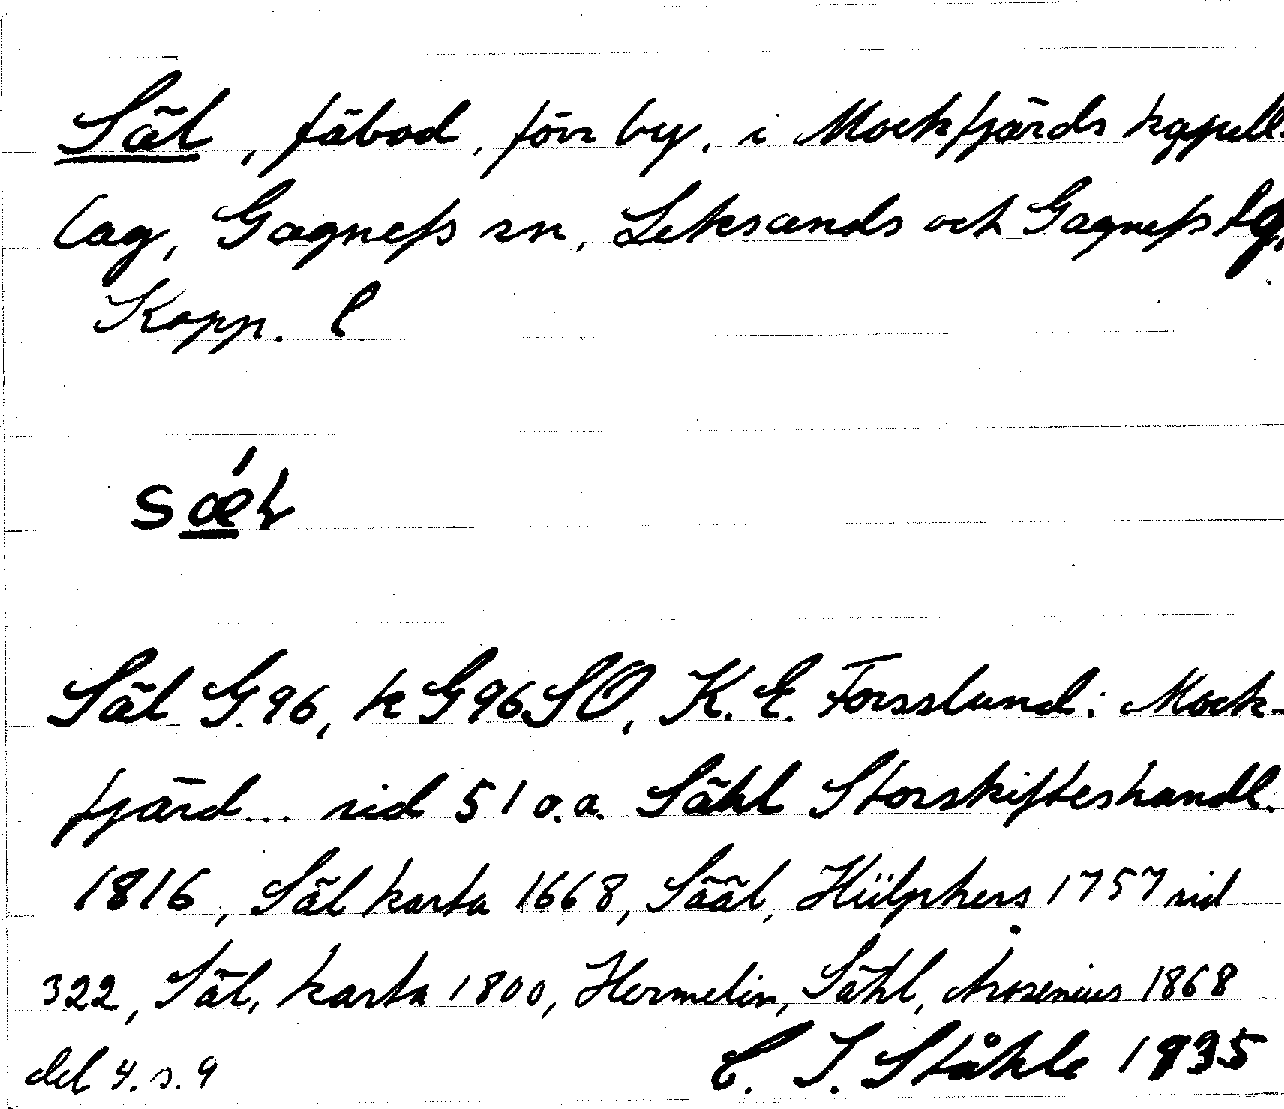 Säl, fäbod, förr by, i Mockfjärds kapell
lag, Gagnefs sn, Leksands och Gagnefs tg.
Kopp. l
sǽl
Säl G. 96, k G96SO, K. E. Forsslund: Mock-
fjärd... sid 51 o.a. Sähl Storskifteshandl.
1816, Säl karta 1668, Sääl, Hülphers 1757 sid
322, Säl, karta 1800, Hermelin, Sähl, Arosenius 1868
del 4. s. 9
C. I. Ståhle 1935